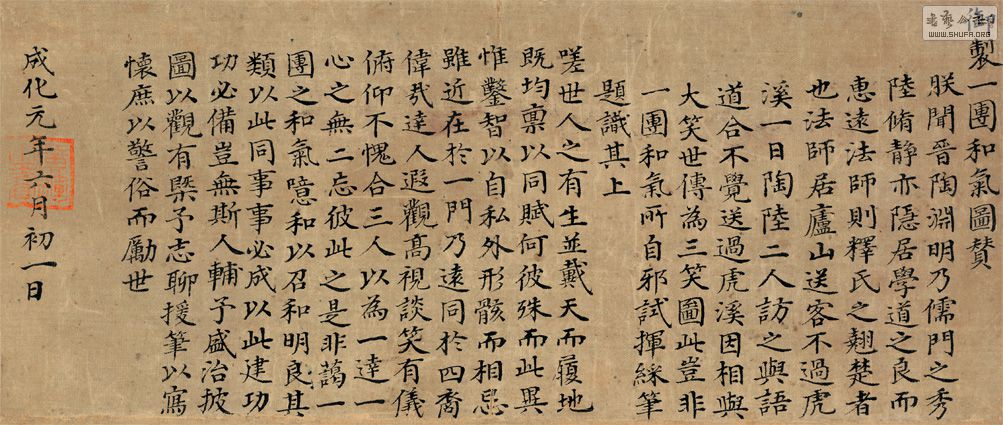 御製一團和氣圖贊
朕聞晉陶淵明乃儒門之秀
陸脩静亦隱居學道之良而
惠遠法師則釋氏之翹楚者
也法師居廬山送客不過虎
溪一日陶陸二人訪之與語
道合不覺送過虎溪因相與
大笑世傳為三笑圖此豈非
一團和氣所自邪試揮綵筆
題識其上
嗟世人之有生並戴天而履地
既均禀以同賦何彼殊而此異
惟鑿智以自私外形骸而相忌
雖近在於一門乃遠同於四裔
偉哉達人遐觀高視談笑有儀
俯仰不愧合三人以為一達一
心之無二忘彼此之是非藹一
團之和氣噫和以召和明良其
類以此同事事必成以此建功
功必備豈無斯人輔予盛治披
圖以觀有槩予志聊援筆以寫
懷庶以警俗而勵世
成化元年六月初一日
書藝公社
WWW.SHUFA.ORG